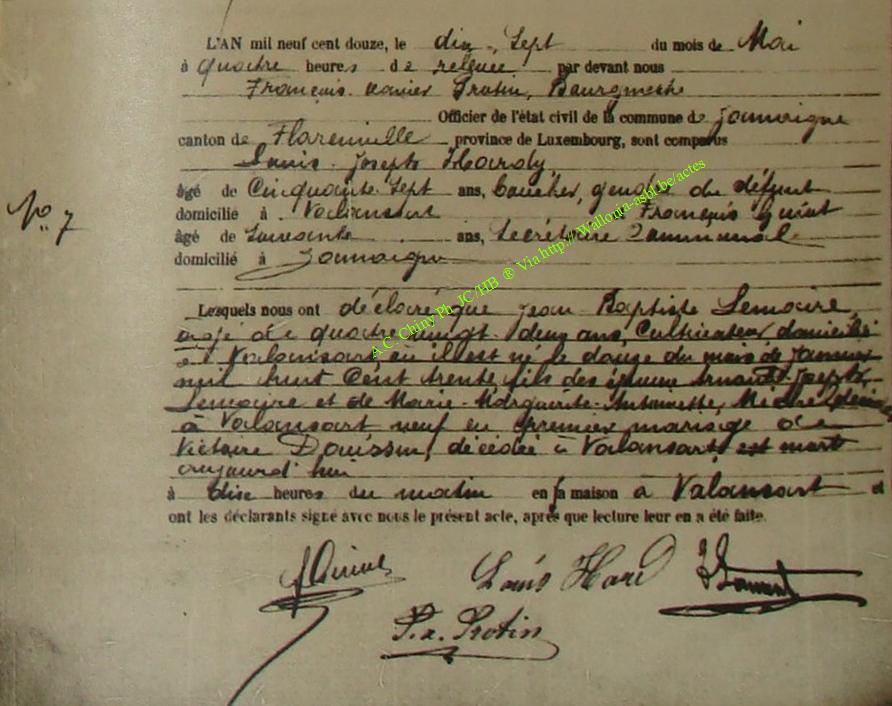 L'AN mil neuf cent douze, le dix-Sept du mois de Mai
à quatre heures de relevée par devant nous
François-Xavier Protin, Bourgmestre
Officier de l'état civil de la commune de Jamoigne
canton de Florenville province de Luxembourg, sont comparus
Louis-Joseph Hardy,
âgé de Cinquante Sept ans, gendre du défunt
domicilié à Valansart François
âgé de Soixante ans, Secrétaire Communal
domicilié à Jamoigne
N° 7
Lesquels nous ont déclaré que Jean Baptiste Lemaire,
âgé de quatre vingt deux ans, Cultivateur, domicilié
à Valansart, où il est né le douze du mois de Janvier
mil huit Cent trente fils des époux Arnould-Joseph
Lemaire et de Marie-Marguerite-Antoinette,
à Valansart veuf en premier mariage de
Victoire décédée à Valansart, est mort
aujourd'hui
à dix heures du matin en sa maison à Valansart et
ont les déclarants signé avec nous le présent acte, après que lecture leur en a été faite.
Louis Hard
F. x. Protin
A.C. Chiny Ph. JC/HB ® Via http://Wallonia-asbl.be/actes